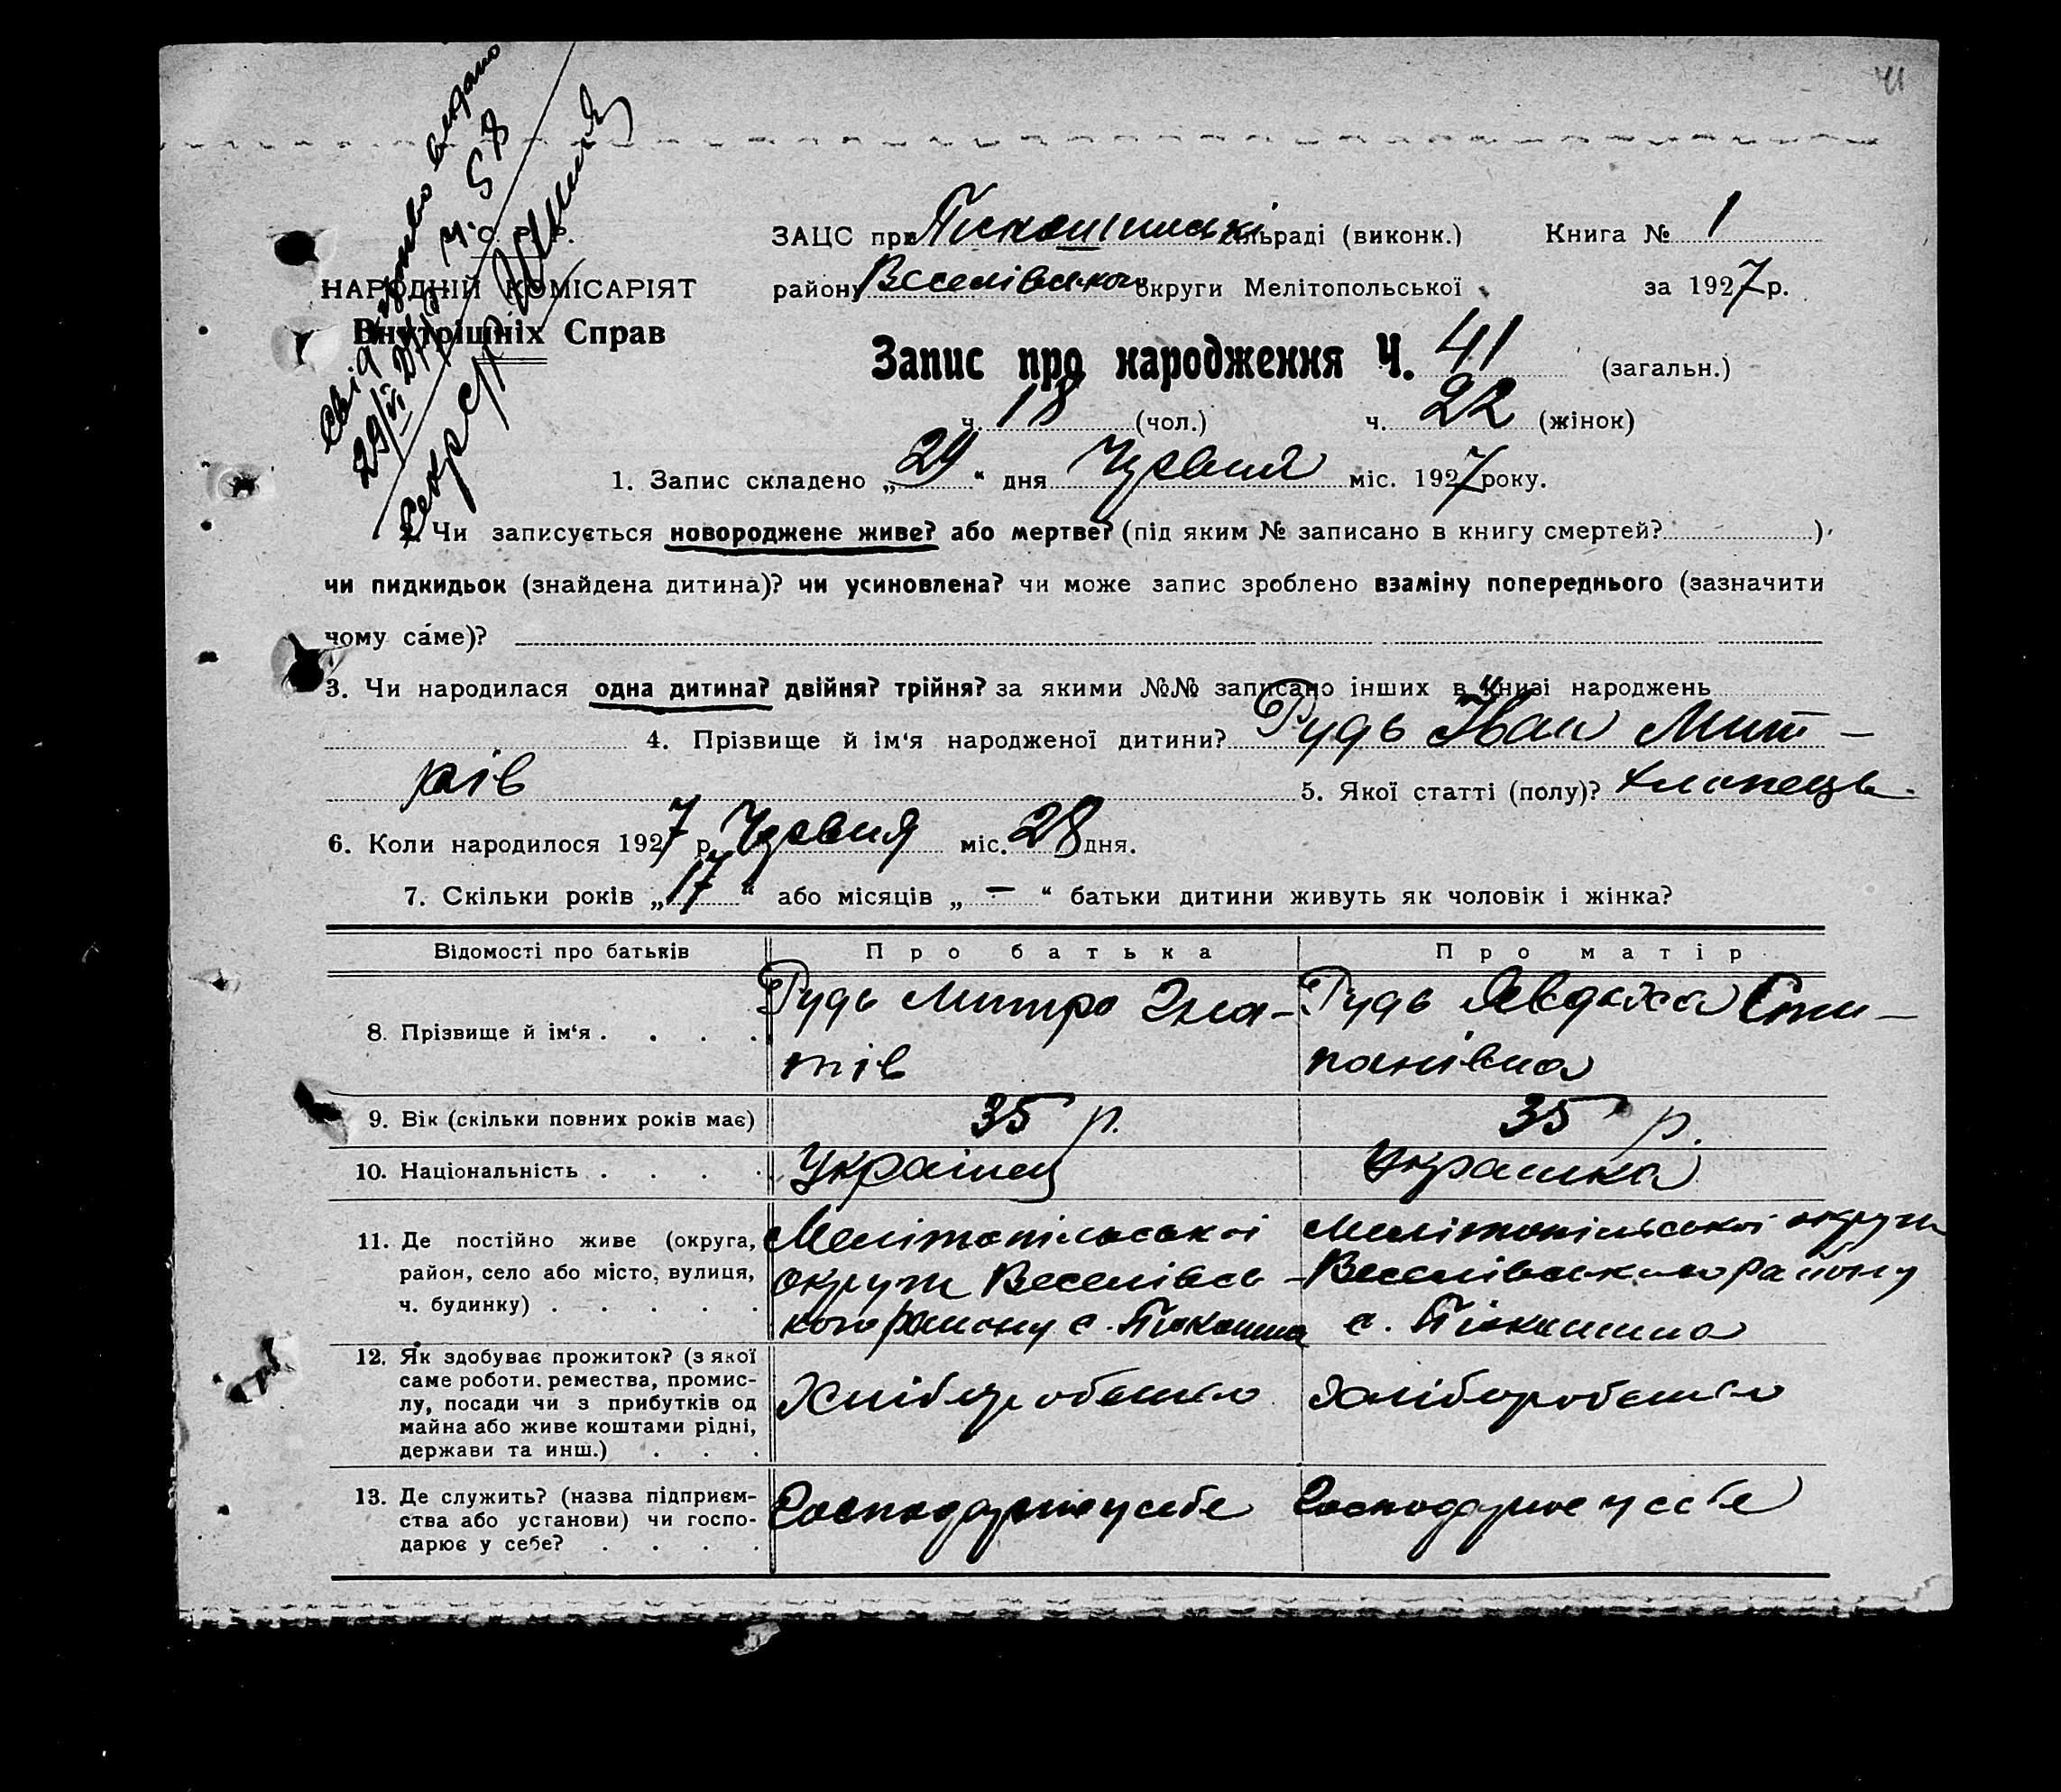 41
Свідоцтво видано
29/VI 27 р. Ч. 58
Секр.
У. С. Р. Р.
НАРОДНІЙ КОМІСАРІЯТ
Внутрішніх Справ
ЗАЦС при сільраді (виконк.) Книга № 1
району Веселівського округи Мелітопольської за 1927 р.
Запис про народження Ч. 41 (загальн.)
ч. 18 (чол.) ч. 22 (жінок)
1. Запис складено „29“ дня Червня міс. 1927 року.
2. Чи записується новороджене живе? або мертве? (під яким № записано в книгу смертей? )
чи пидкидьок (знайдена дитина)? чи усиновлена? чи може запис зроблено взаміну попереднього (зазначити
чому са́ме)?
3. Чи народилася одна дитина? двійня? трійня? за якими №№ записано інших в книзі народжень
4. Прізвище й ім‘я народженої дитини? Рудь Іван Мит-
рів 5. Якої статті (полу)? хлопець.
6. Коли народилося 1927 р. Червня міс. 28 дня.
7. Скільки років „17“ або місяців „—“ батьки дитини живуть як чоловік і жінка?
Відомості про батьків Про батька Про матір
8. Прізвище й ім‘я . . . . Рудь Митро Гна- Рудь Явдоха Сти-
тів панівна
9. Вік (скільки повних років має) 35 р. 35 р.
10. Національність . . . . Українец Украінка
11. Де постійно живе (округа, Мелітопільскоі Мелітопільскої округи
район, село або місто, вулиця, округи Веселівсь- Веселівського району
ч. будинку) . . . . . кого району с. с.
12. Як здобуває прожиток? (з якої
саме роботи, ремества, промис-
лу, посади чи з прибутків од Хліборобством Хліборобством
майна або живе коштами рідні,
держави та инш.) . . .
13. Де служить? (назва підприєм- Господарює у себе Господарює у себе
ства або установи) чи госпо-
дарює у себе? . . . .